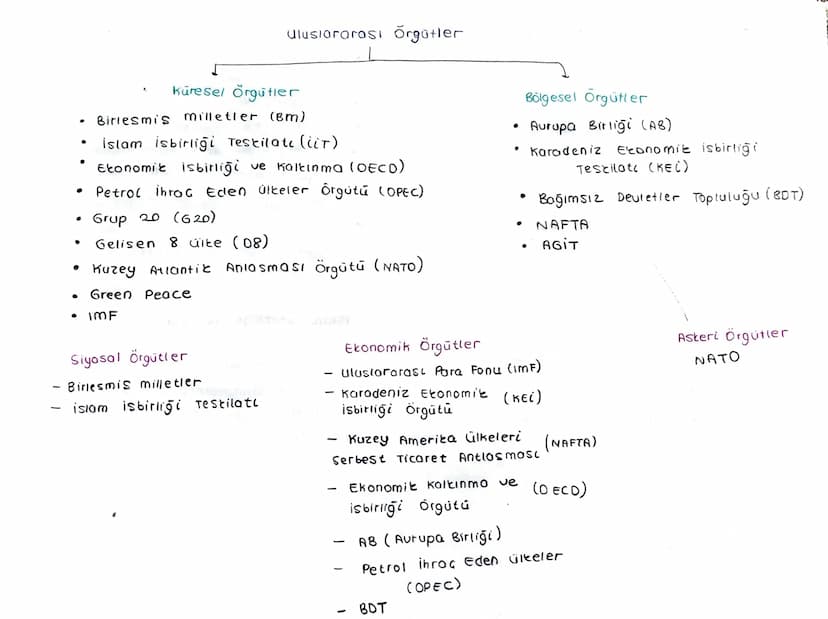 Uluslararası Örgütler
Küresel Örgütler
• Birleşmiş Milletler (BM)
• İslam İşbirliği Teşkilatı (İİT)
• Ekonomik İşbirliği ve Kalkınma (OECD)
• Petrol İhraç Eden Ülkeler Örgütü (OPEC)
• Grup 20 (G20)
• Gelişen 8 Ülke (D8)
• Kuzey Atlantik Anlaşması Örgütü (NATO)
• Green Peace
• IMF
Bölgesel Örgütler
• Avrupa Birliği (AB)
• Karadeniz Ekonomik İşbirliği
Teşkilatı (KEİ)
• Bağımsız Devletler Topluluğu (BDT)
• NAFTA
• AGİT
Siyasal Örgütler
– Birleşmiş Milletler
– İslam İşbirliği Teşkilatı
Ekonomik Örgütler
– Uluslararası Para Fonu (IMF)
– Karadeniz Ekonomik (KEİ)
İşbirliği Örgütü
– Kuzey Amerika Ülkeleri (NAFTA)
Serbest Ticaret Antlaşması
– Ekonomik Kalkınma ve (OECD)
İşbirliği Örgütü
– AB (Avrupa Birliği)
– Petrol İhraç Eden Ülkeler
(OPEC)
– BDT
Askeri Örgütler
NATO